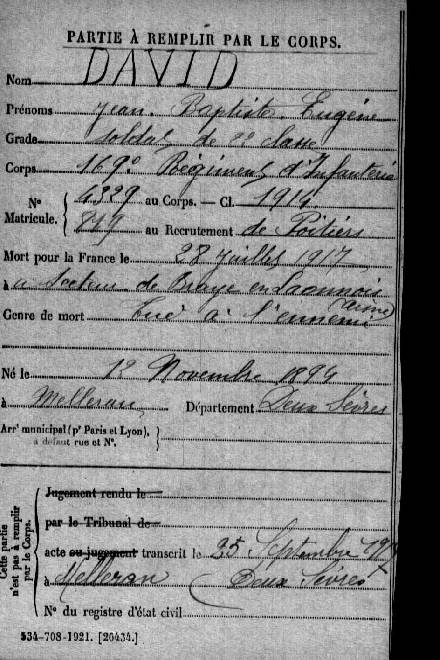 PARTIE À REMPLIR PAR LE CORPS.
Nom DAVID
Prénoms Jean Baptiste Eugène
Grade soldat de 2e classe
Corps 169e Régiment d'Infanterie
N° Matricule. { 4339 au Corps. — Cl. 1914
819 au Recrutement de Poitiers
Mort pour la France le 28 juillet 1917
à secteur de Braye en Laonnois (Aisne)
Genre de mort Tué à l'ennemi
Né le 12 Novembre 1894
à Melleran Département Deux Sèvres
Arrt municipal (pr Paris et Lyon),
à défaut rue et N°.
Cette partie n'est pas à remplir par le Corps.
Jugement rendu le
par le Tribunal de
acte ou jugement transcrit le 25 Septembre
à Melleran (Deux Sèvres
N° du registre d'état civil
534-708-1921. [20434.]